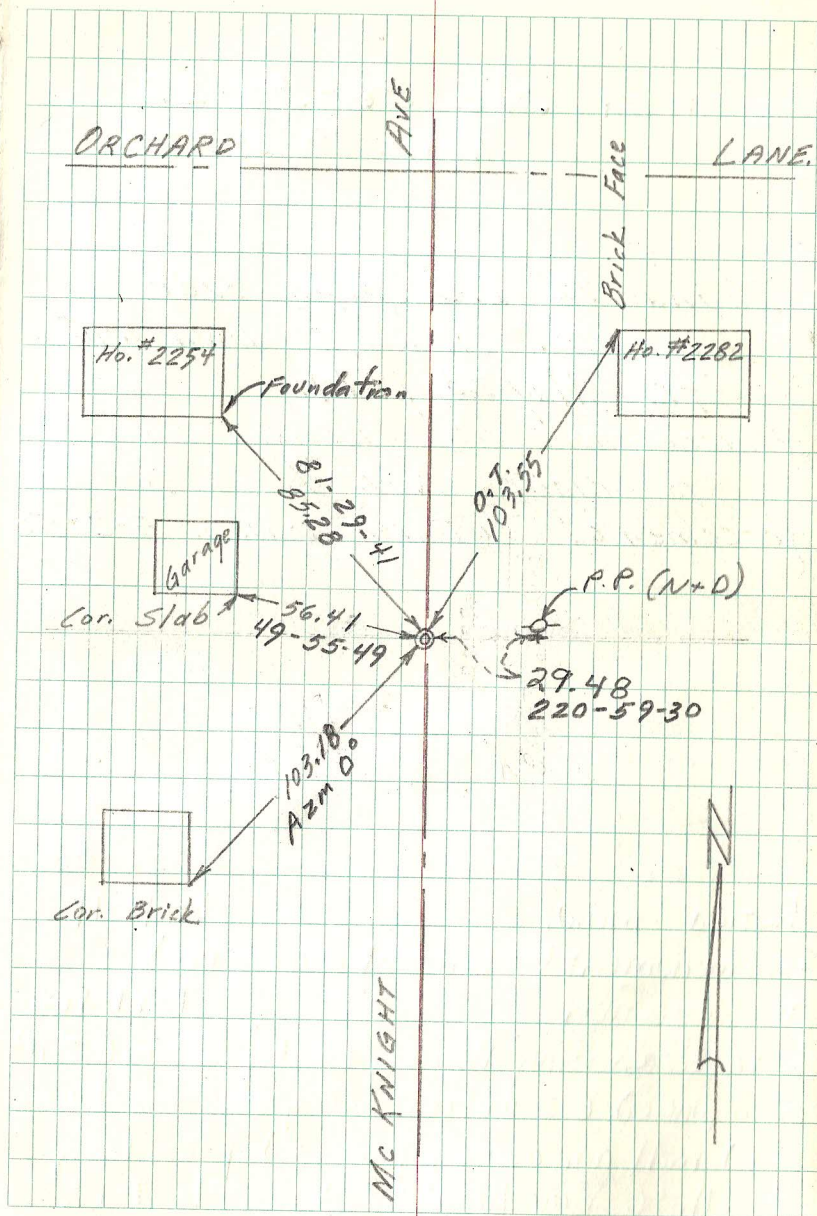 ORCHARD
AVE
LANE.
Brick Face
Ho. #2254
Ho. #2282
Foundation
81-29-41
85.28
O.T.
103.55
Garage
P.P. (N+D)
Cor. Slab
56.41
49-55-49
29.48
220-59-30
103.18
Azm 0°
Cor. Brick
N
MC KNIGHT